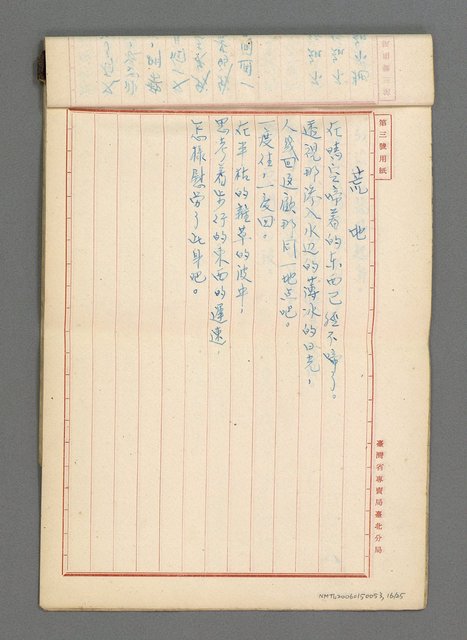 第三號用紙
荒地
在晴空啼着的东西已經不啼了。
透視那滲入水边的薄冰的日光，
人或回返顧那同一地点吧。
一度住，一度回。
在半枯的雜草的波中，
思考着步行的東西的遲速，
怎樣慰劳了此身吧。
臺灣省專賣局臺北分局
NMTL20060150053, 16/25